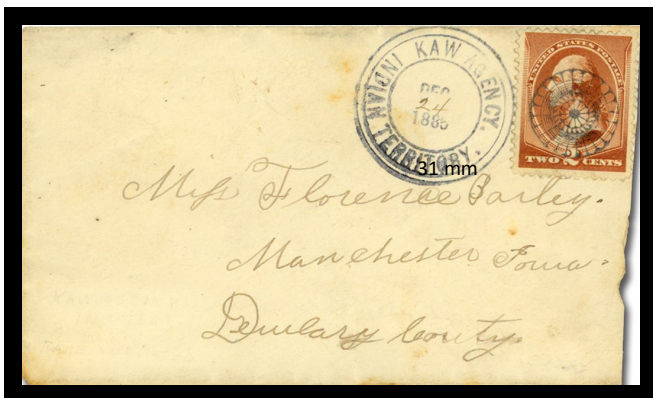 KAW AGENCY.
INDIAN TERRITORY.
DEC
24
1885
UNITED STATES POSTAGE
TWO 2 CENTS
31 mm
Miss Florence Barley.
Manchester Iowa.
Couty.